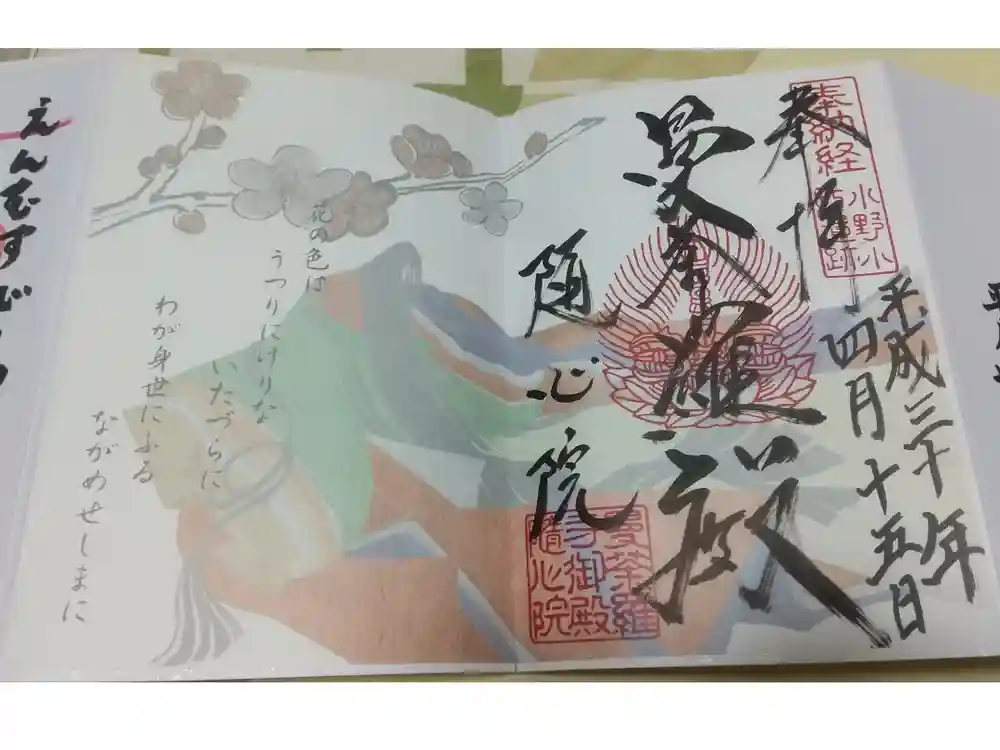 奉拝
奉納経
小野小
跡
平成三十年
四月十五日
曼荼羅殿
随心院
曼荼羅
御殿
隨心院
花の色は
うつりにけりな
いたづらに
わが身世にふる
ながめせしまに
えんむすび